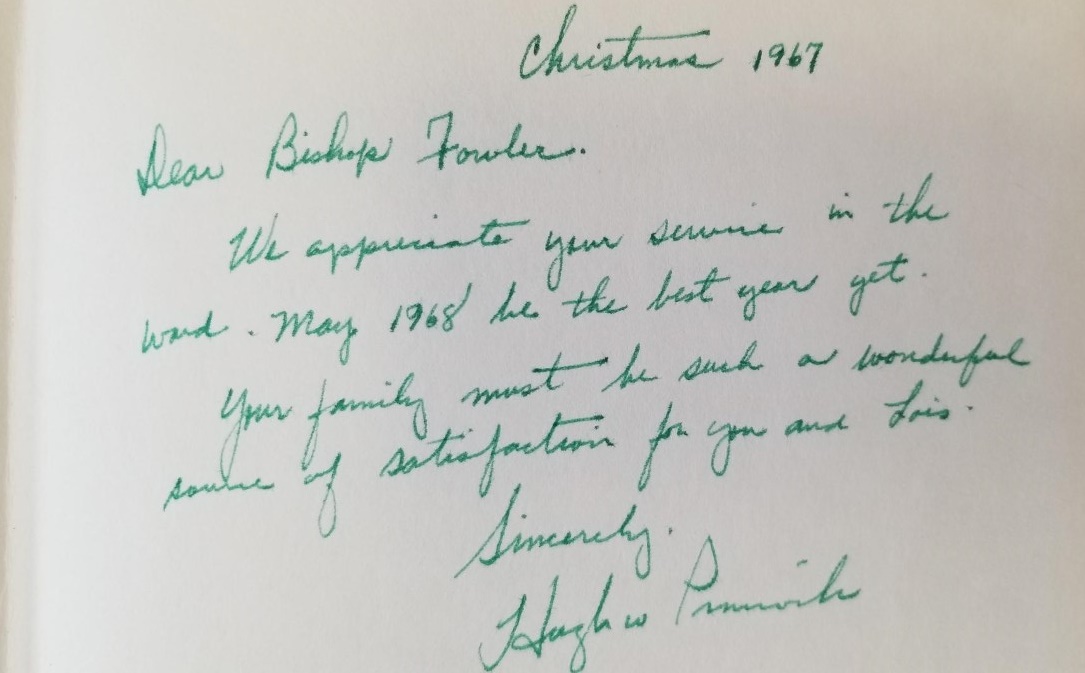 Christmas 1967
Dear Bishop Fowler.
We appreciate your service in the
ward. May 1968 be the best year yet.
Your family must be such a wonderful
source of satisfaction for you and Lois.
Sincerely.
Hugh W